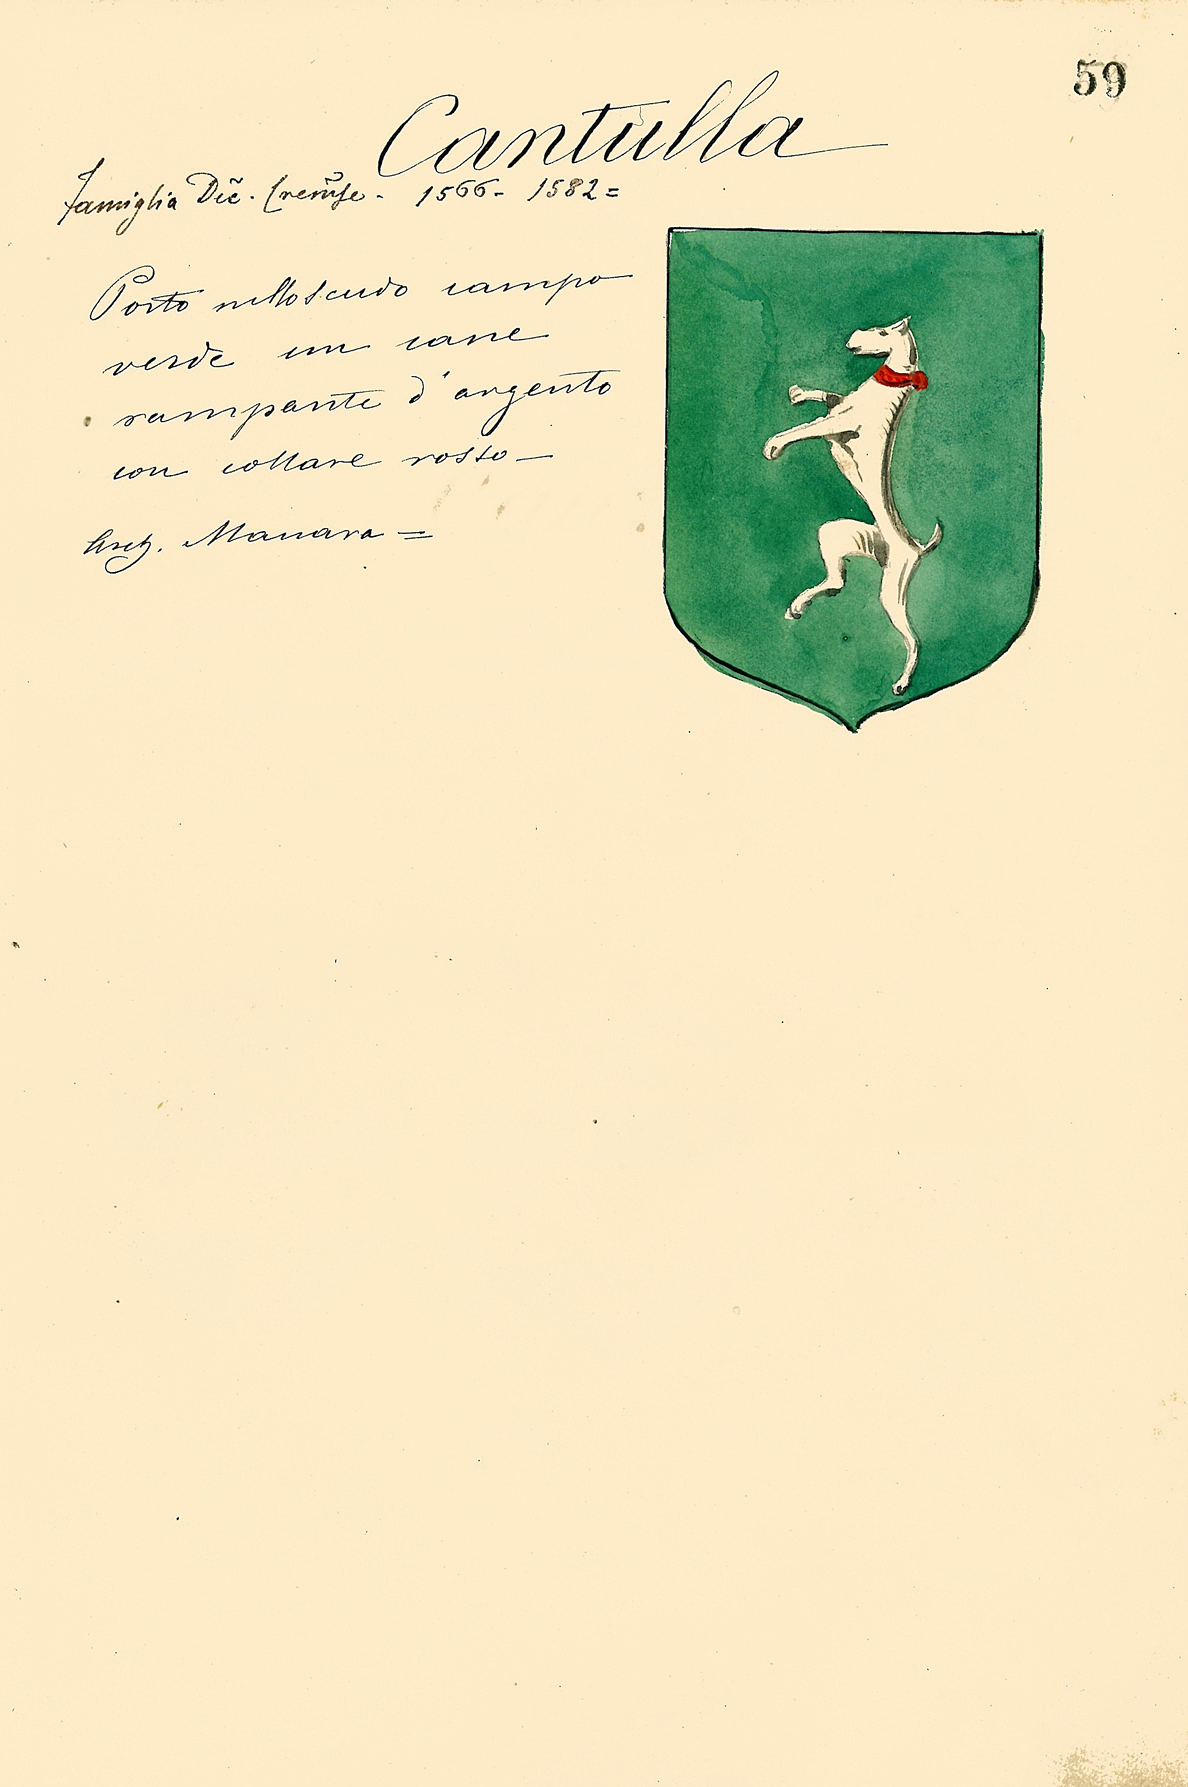 59
Cantulla
famiglia Dec. Cremse. 1566- 1582=
Porto nello scudo campo
verde un cane
rampante d'argento
con collare rosso -
Manara =